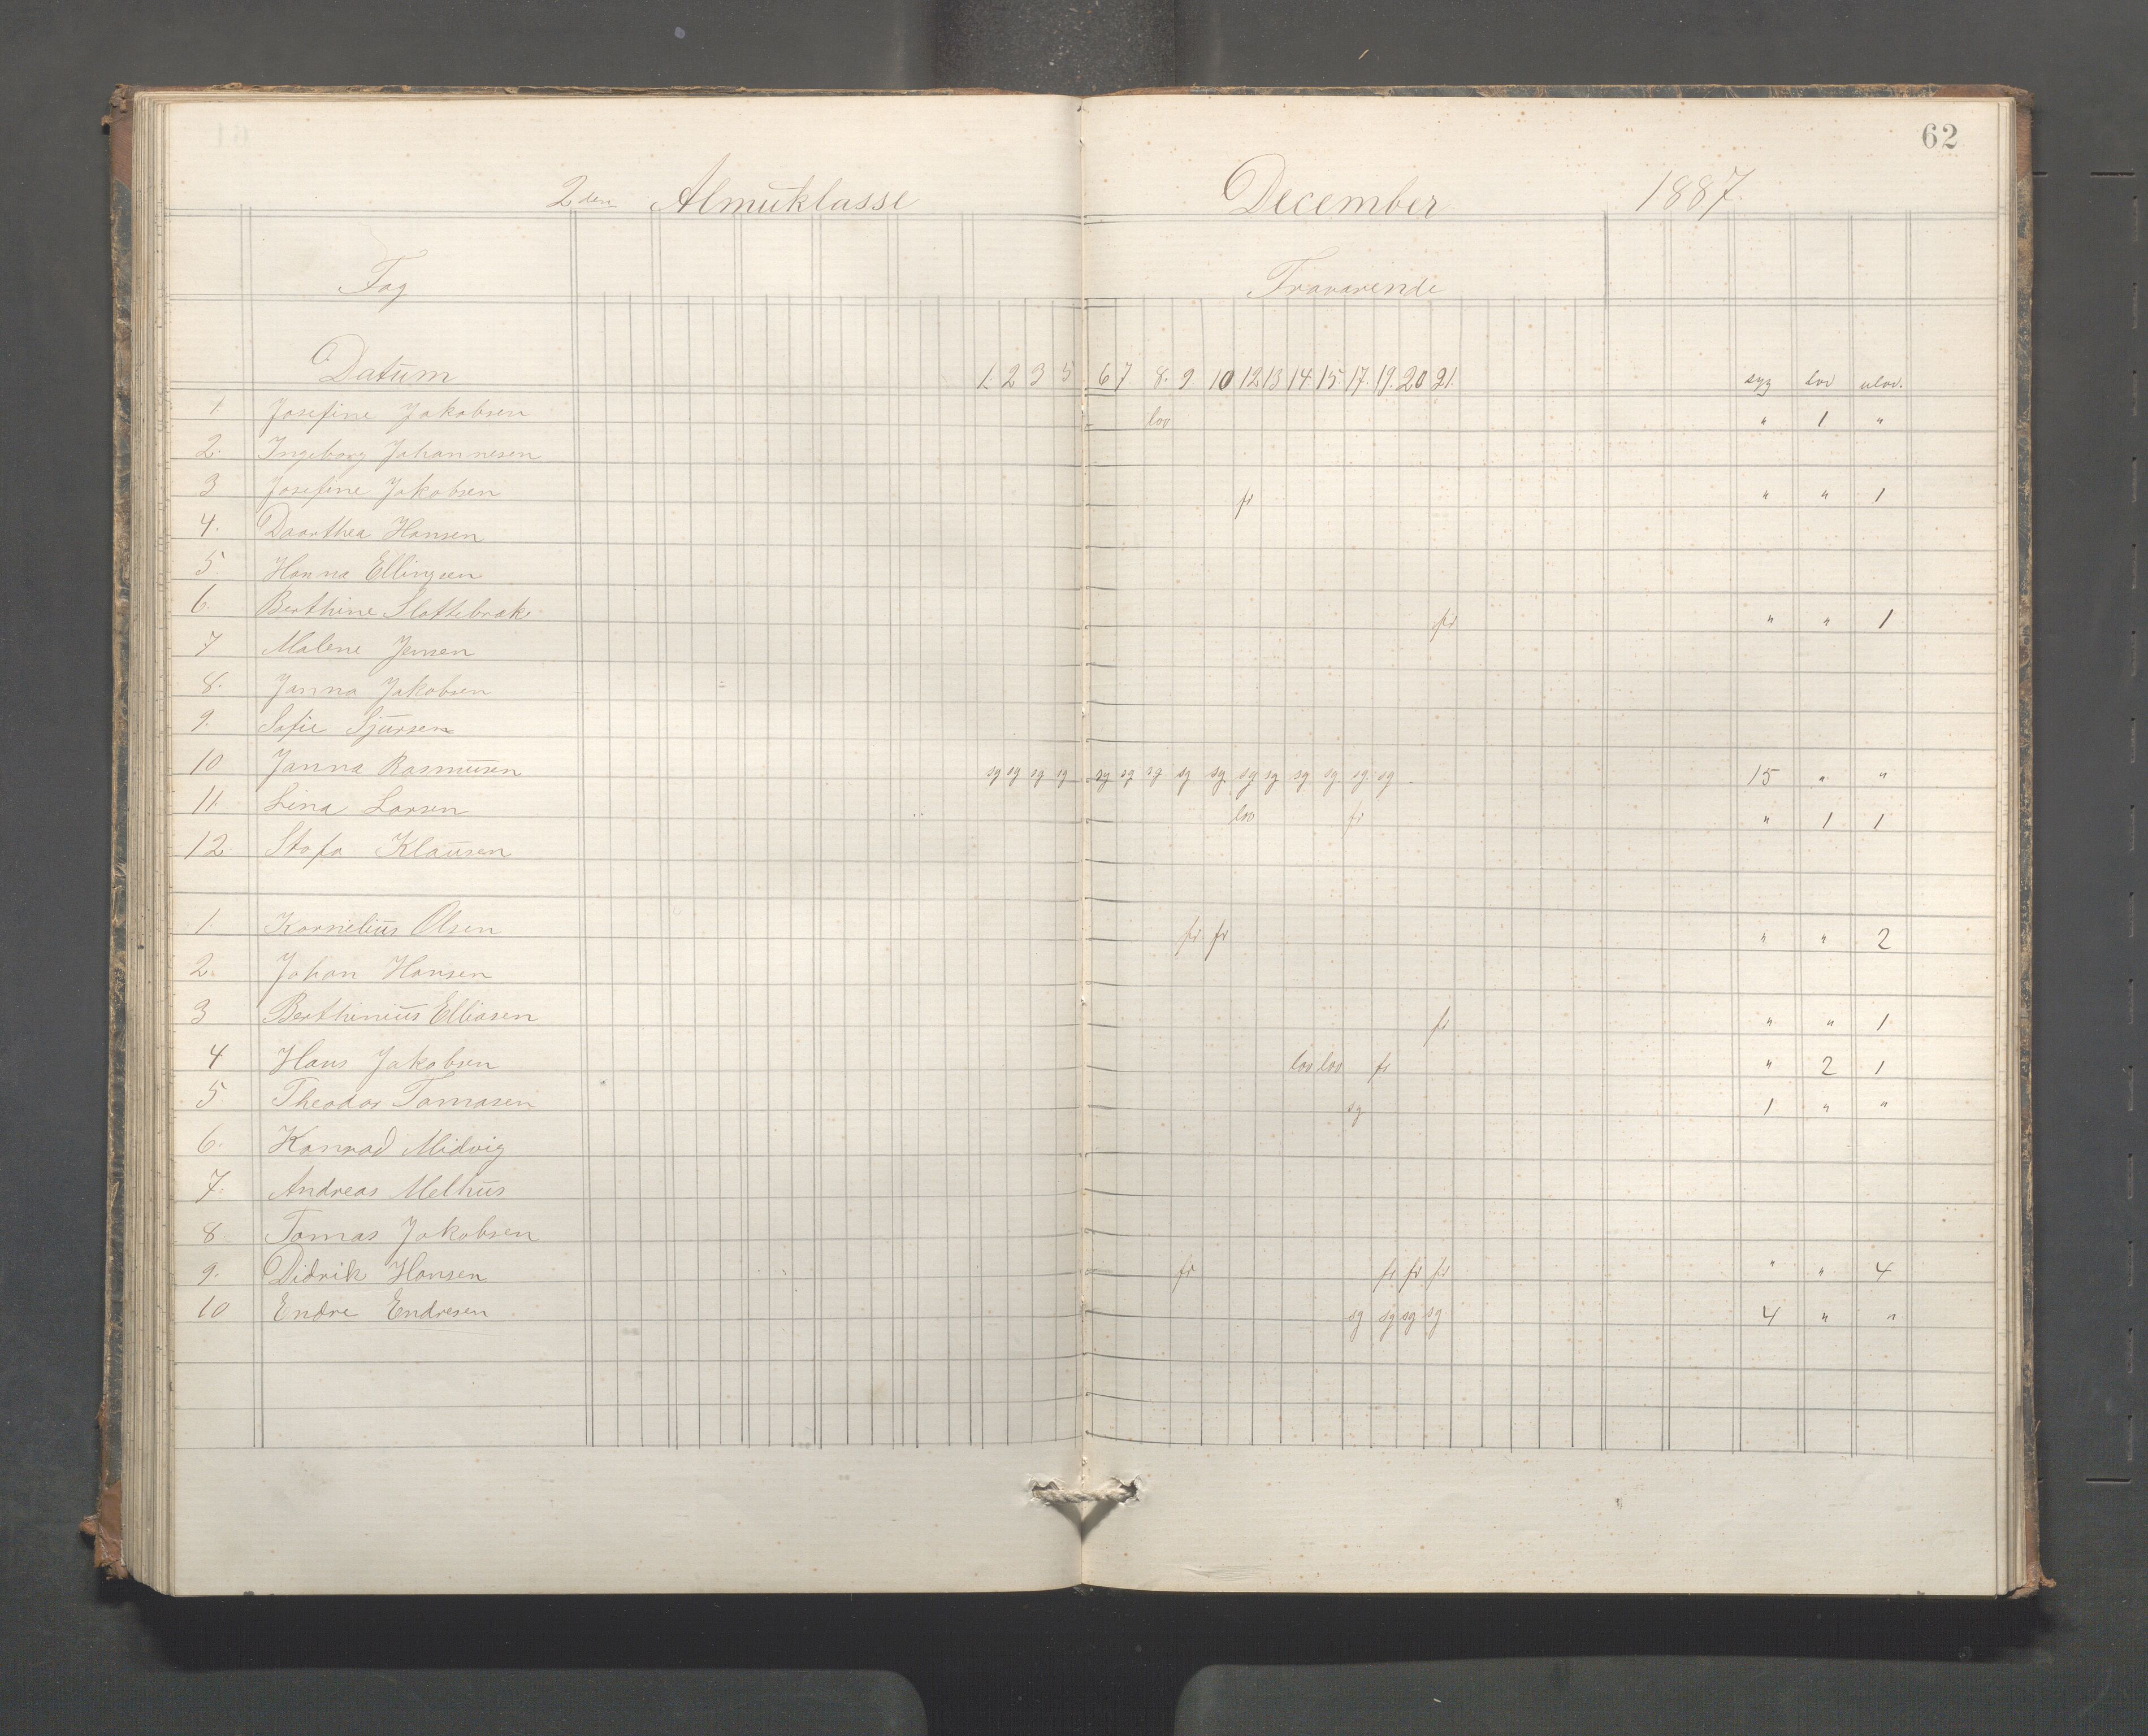 62
2den Almuklasse December 1887
Fag Fraværende
Datum 1. 2 3 5 6 7 8. 9 10 12 13 14 15. 17. 19. 20 21. syg lov ulov.
1. Josefine Jakobsen lov " 1 "
2. Ingeborg Johannesen
3 Josefine Jakobsen fr " " 1
4. Doorthea Hansen
5 Hanna Ellingsen
6. Berthine Slottebrak fr " " 1
7 Malene Jensen
8. Janna Jakobsen
9. Sofie Sjursen
10 Janna Rasmusen sg sg sg sg sg sg sg sg sg sg sg sg sg sg sg 15 " "
11. Lina Larsen lov fr " 1 1
12. Klausen
1. Kornelius Olsen fr fr " " 2
2. Johan Hansen
3 Berthinius Elliasen fr " " 1
4 Hans Jakobsen lov lov fr " 2 1
5 Theodor Tomasen sg 1 " "
6. Konrad Midvig
7. Andreas Melhus
8. Tomas Jakobsen
9. Didrik Hansen fr fr fr fr " " 4
10 Endre Endresen sg sg sg sg 4 " "